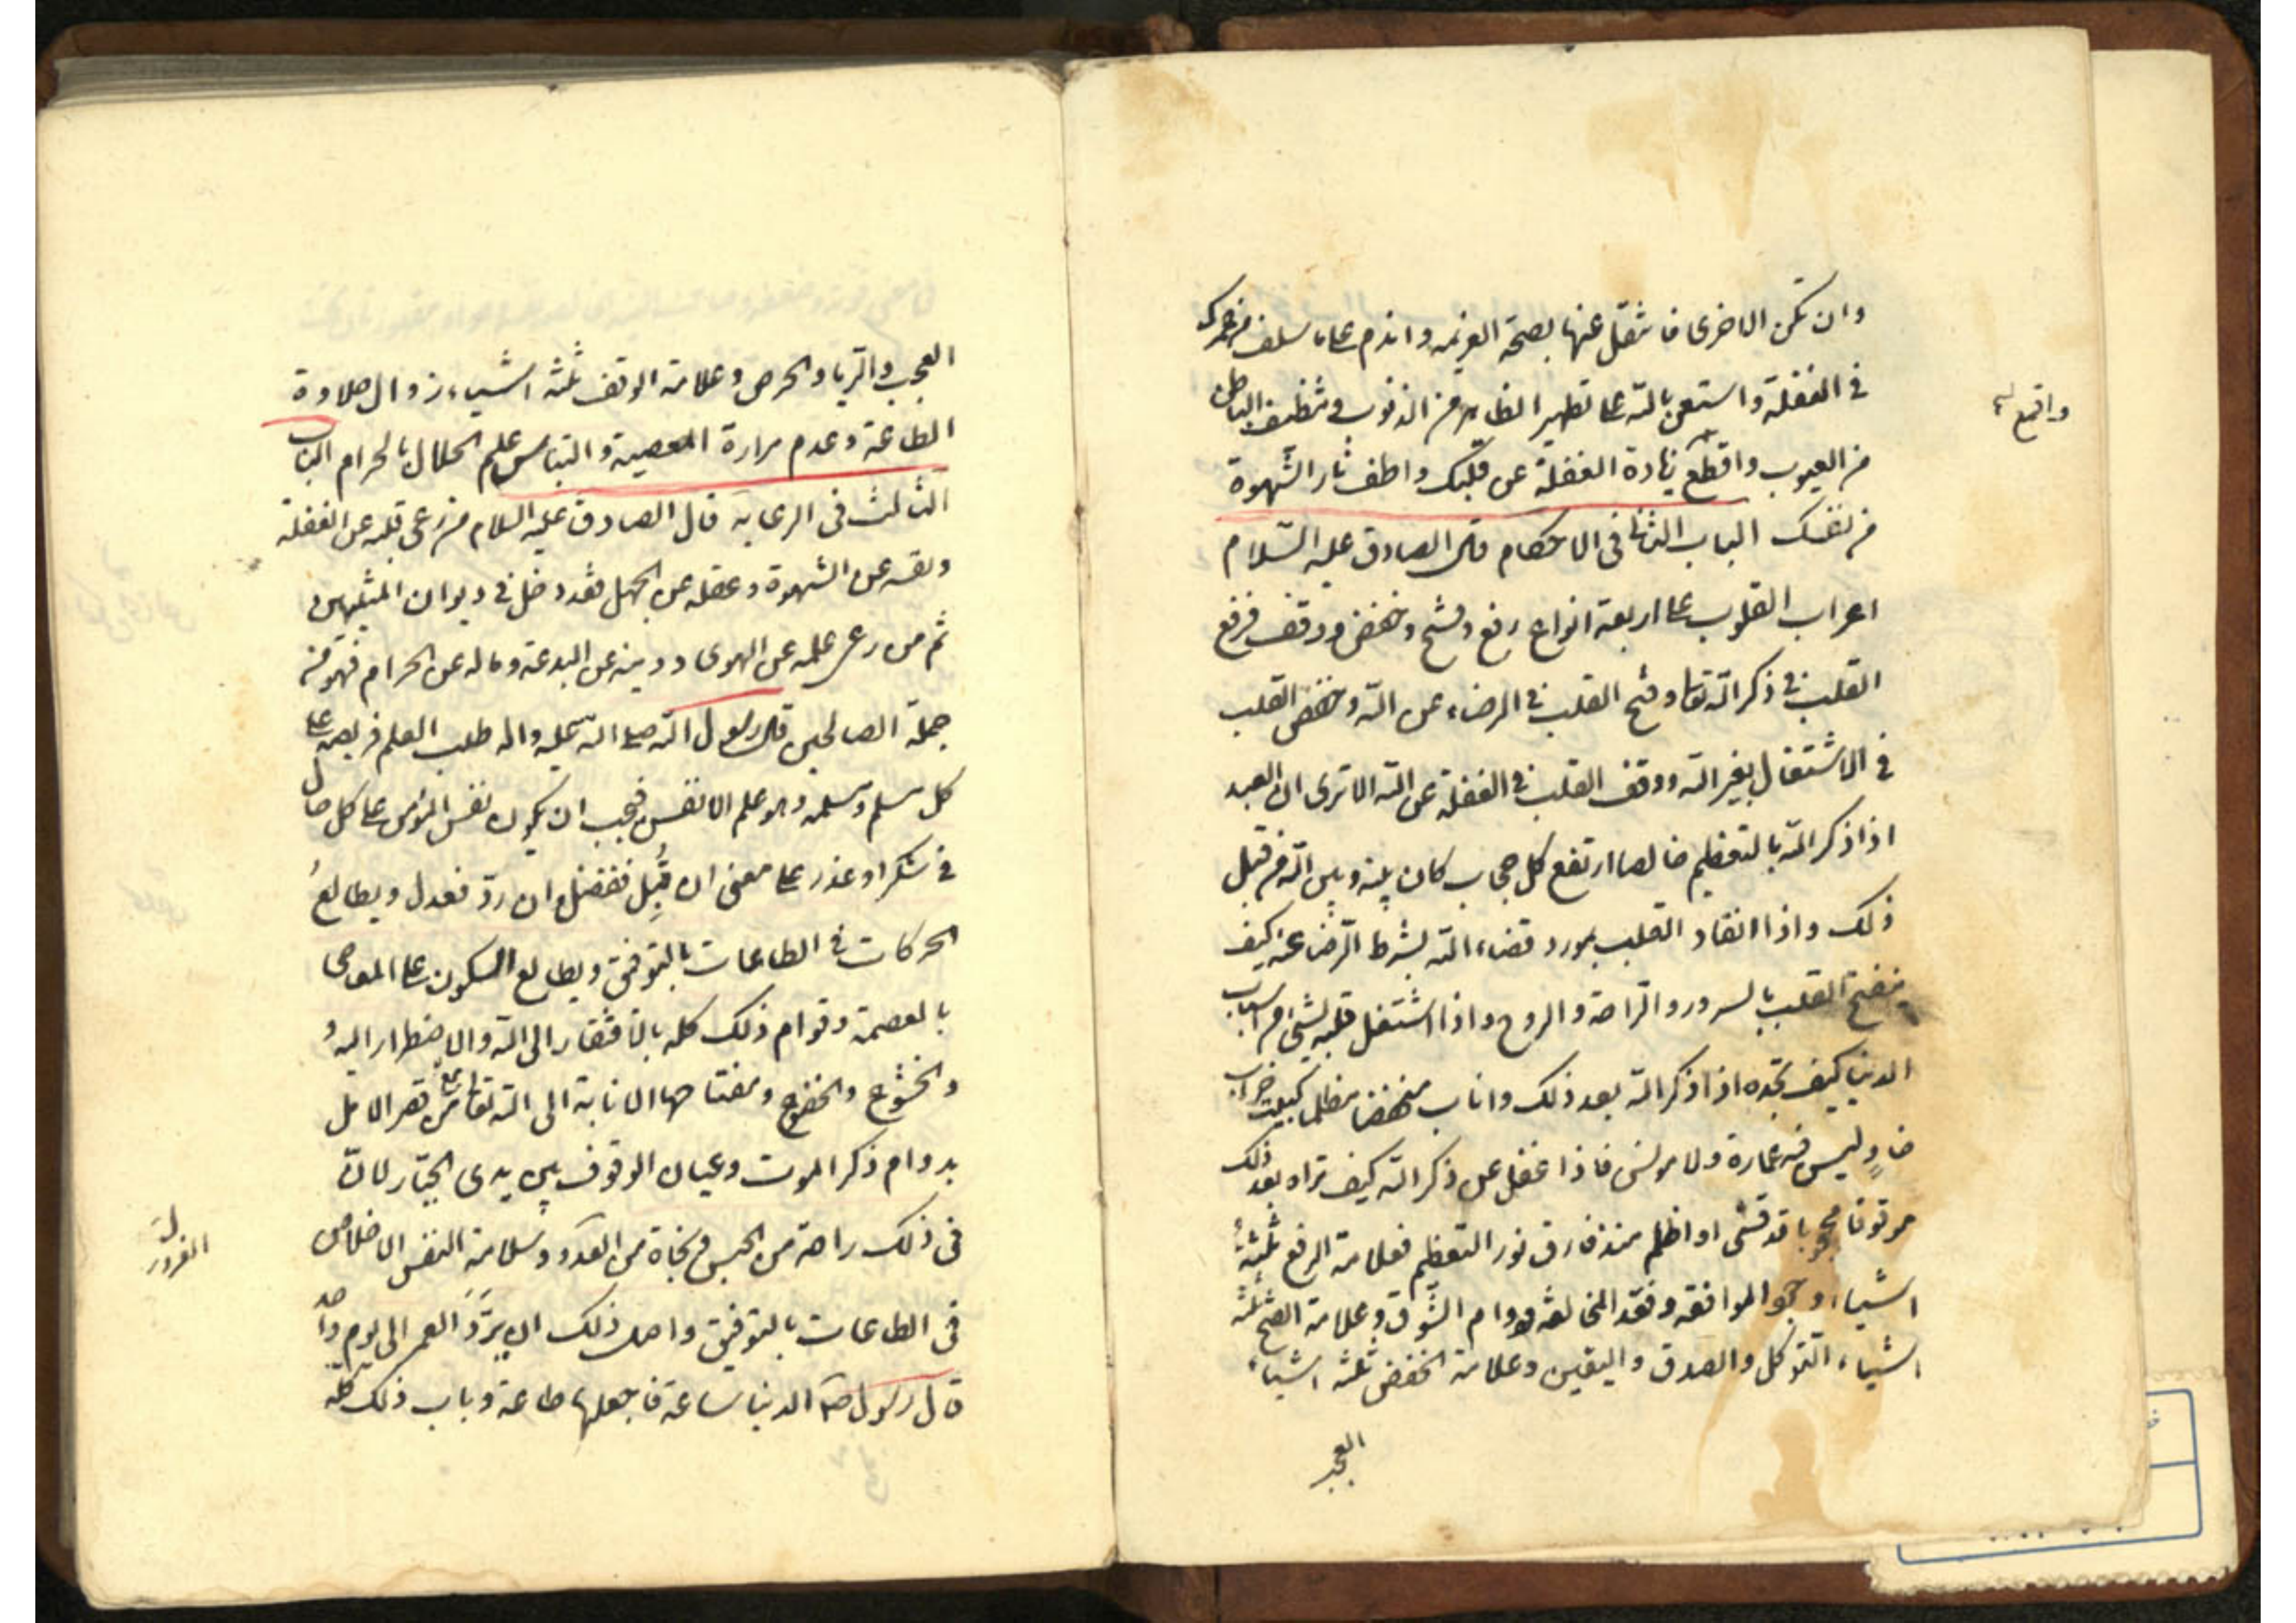 وان تكن الاخرى فانتقل عنها بصحة العزيمه واندم على ما سلف من عمرك
في الغفلة واستعن بالله على تطهير الظاهر من الذنوب وتنظيف الباطن
من العيوب واقطع زيادة الغفلة عن قلبك واطف نار الشهوة
واقمع
من نفسك الباب الثاني في الاحكام قال الصادق عليه السلام
اعراب القلوب على اربعة انواع رفع وفتح وخفض ووقف فرفع
القلب في ذكر الله تعالى وفتح القلب في الرضاء عن الله وخفض القلب
في الاشتغال بغير الله ووقف القلب في الغفلة عن الله الا ترى ان العبد
اذا ذكر الله بالتعظيم خالصا ارتفع كل حجاب كان بينه وبين الله من قبل
ذلك واذا انقاد القلب بمورد قضاء الله بشرط الرضا عنه كيف
ينفتح القلب بالسرور والراحة والروح واذا اشتغل قلبه بشئ من اسباب
الدنيا كيف تجده اذا ذكر الله بعد ذلك واناب منخفضا مظلما كبيت خراب
خاوٍ ليس فيه عمارة ولا مونس فاذا غفل عن ذكر الله كيف تراه بعد ذلك
موقوفا محجوبا قد قسى او اظلم منذ فارق نور التعظيم فعلامة الرفع ثلثة
اشياء وجود الموافقه وفقد المخالفه ودوام الشوق وعلامة الفتح ثلثة
اشياء التوكل والصدق واليقين وعلامة الخفض ثلثه اشياء
العجب
العجب والريا والحرص وعلامة الوقف ثلثه اشياء زوال حلاوة
الطاعة وعدم مرارة المعصية والتباس علم الحلال بالحرام الباب
الثالث فى الرعاية قال الصادق عليه السلام من رعى قلبه عن الغفلة
ونفسه عن الشهوة وعقله عن الجهل فقد دخل في ديوان المتنبهين
ثم من رعى علمه عن الهوى ودينه عن البدعة وماله عن الحرام فهو من
جملة الصالحين قال رسول الله صلى الله عليه واله طلب العلم فريضة على
كل مسلم ومسلمه وهو علم الانفس فيجب ان يكون نفس المؤمن على كل حال
في شكر او عذر على معنى ان قُبِل ففضل وان ردّ فعدل ويطالعُ
الحركات في الطاعات بالتوفيق ويطالع السكون على المعاصى
بالعصمة وقوام ذلك كله بالافتقار الى الله والاضطرار اليه و
والخشوع والخضوع ومفتاحها الانابة الى الله تعالى مع قصر الامل
بدوام ذكر الموت وعيان الوقوف بين يدى الجبّار لانّ
فى ذلك راحة من الحبس ونجاة من العدو وسلامة النفس الاخلاص
فى الطاعات بالتوفيق واصل ذلك ان يردّ العمر الى يوم واحد
قال رسول الله ص الدنيا ساعة فاجعلها طاعة وباب ذلك كله